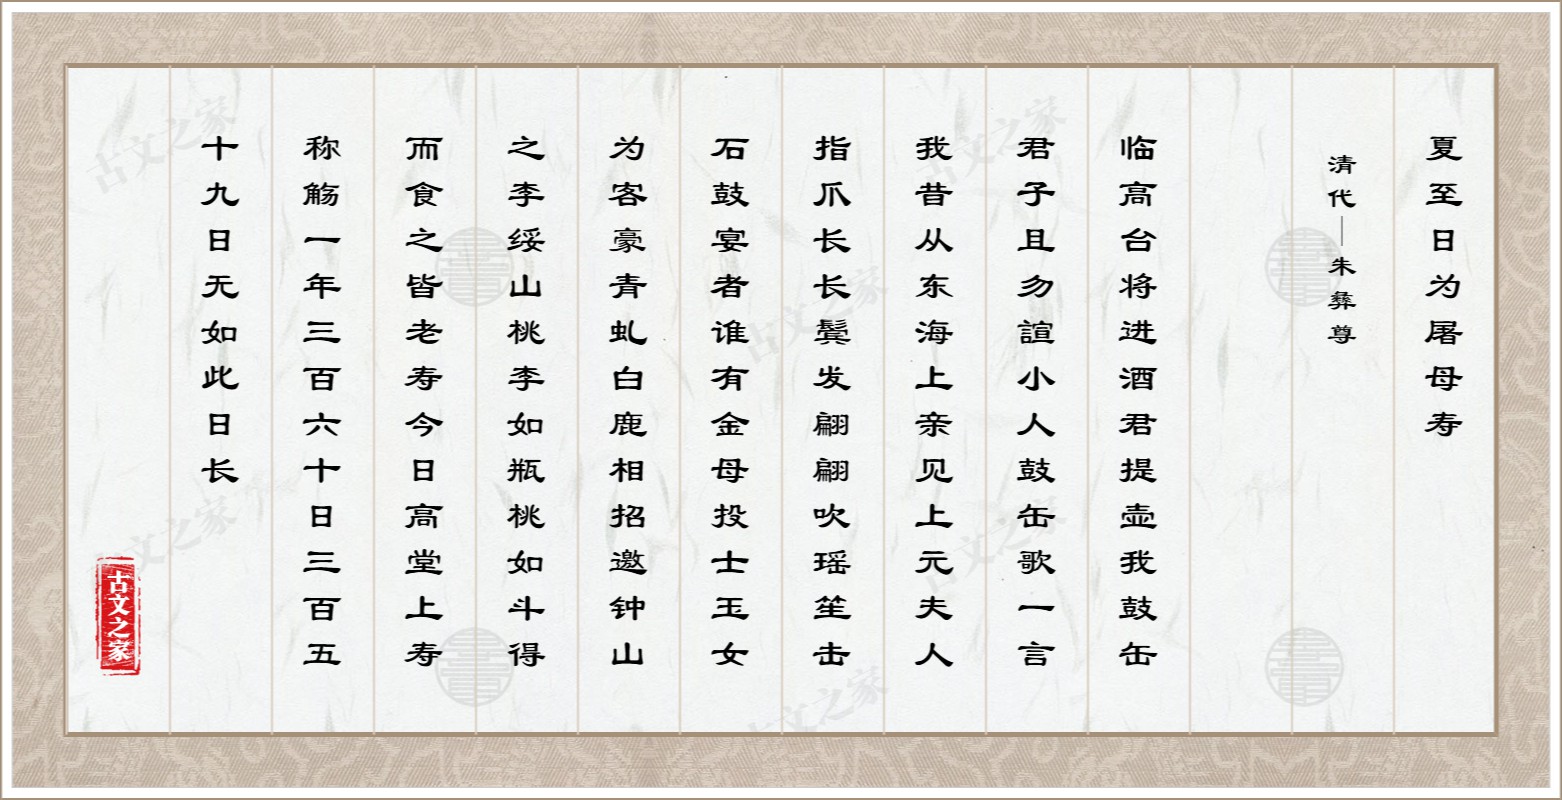 夏至日为屠母寿
清代—朱彝尊
临高台将进酒君提壶我鼓缶
君子且勿諠小人鼓缶歌一言
我昔从东海上亲见上元夫人
指爪长长鬓发翩翩吹瑶笙击
石鼓宴者谁有金母投士玉女
为客豪青虬白鹿相招邀钟山
之李绥山桃李如瓶桃如斗得
而食之皆老寿今日高堂上寿
称觞一年三百六十日三百五
十九日无如此日长
古文之家